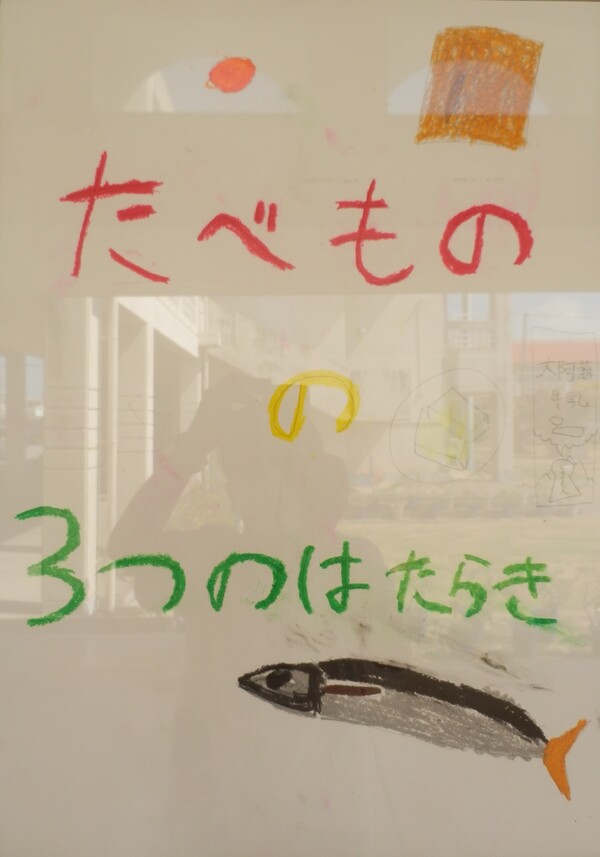 たべもの
の
大阿蘇
牛乳
3つのはたらき